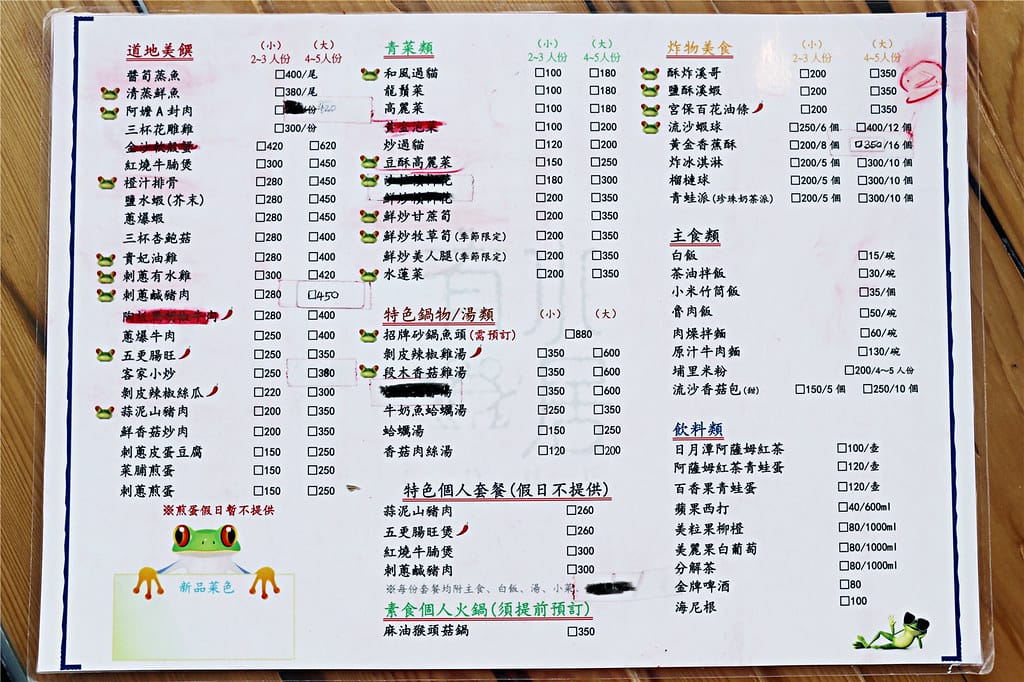 道地美饌 (小) 2~3 人份 (大) 4~5人份
醬筍蒸魚 □400/尾
清蒸鮮魚 □380/尾
阿嬤A封肉 /份 420
三杯花雕雞 □300/份
□420 □620
紅燒牛腩煲 □300 □450
橙汁排骨 □280 □450
鹽水蝦(芥末) □280 □450
蔥爆蝦 □280 □450
三杯杏鮑菇 □280 □400
貴妃油雞 □280 □400
刺蔥有水雞 □300 □420
刺蔥鹹豬肉 □280 □450
□280 □400
蔥爆牛肉 □280 □400
五更腸旺 □250 □350
客家小炒 □250 □380
剝皮辣椒絲瓜 □220 □300
蒜泥山豬肉 □200 □350
鮮香菇炒肉 □200 □350
刺蔥皮蛋豆腐 □150 □250
菜脯煎蛋 □150 □250
刺蔥煎蛋 □150 □250
※煎蛋假日暫不提供
新品菜色
青菜類 (小) 2~3 人份 (大) 4~5人份
和風過貓 □100 □180
龍鬚菜 □100 □180
高麗菜 □100 □180
黃金泡菜 □100 □200
炒過貓 □120 □200
豆酥高麗菜 □150 □250
□180 □300
□200 □350
鮮炒甘蔗筍 □200 □350
鮮炒牧草筍(季節限定) □200 □350
鮮炒美人腿(季節限定) □200 □350
水蓮菜 □200 □350
特色鍋物/湯類 (小) (大)
招牌砂鍋魚頭(需預訂) □880
剝皮辣椒雞湯 □350 □600
段木香菇雞湯 □350 □600
湯 □350 □600
牛奶魚蛤蠣湯 □250 □350
蛤蠣湯 □150 □250
香菇肉絲湯 □120 □200
特色個人套餐(假日不提供)
蒜泥山豬肉 □260
五更腸旺煲 □260
紅燒牛腩煲 □300
刺蔥鹹豬肉 □300
※每份套餐均附主食、白飯、湯、小菜、
素食個人火鍋(須提前預訂)
麻油猴頭菇鍋 □350
炸物美食 (小) 2~3 人份 (大) 4~5 人份
酥炸溪哥 □200 □350
鹽酥溪蝦 □200 □350
宮保百花油條 □200 □350
流沙蝦球 □250/6 個 □400/12 個
黃金香蕉酥 □200/8 個 □350/16 個
炸冰淇淋 □200/5 個 □300/10 個
榴槤球 □200/5 個 □300/10 個
青蛙派(珍珠奶茶派) □200/5 個 □300/10 個
主食類
白飯 □15/碗
茶油拌飯 □30/碗
小米竹筒飯 □35/個
魯肉飯 □50/碗
肉燥拌麵 □60/碗
原汁牛肉麵 □130/碗
埔里米粉 □200/4~5 人份
流沙香菇包(甜) □150/5 個 □250/10 個
飲料類
日月潭阿薩姆紅茶 □100/壺
阿薩姆紅茶青蛙蛋 □120/壺
百香果青蛙蛋 □120/壺
蘋果西打 □40/600ml
美粒果柳橙 □80/1000ml
美麗果白葡萄 □80/1000ml
分解茶 □80/1000ml
金牌啤酒 □80
海尼根 □100